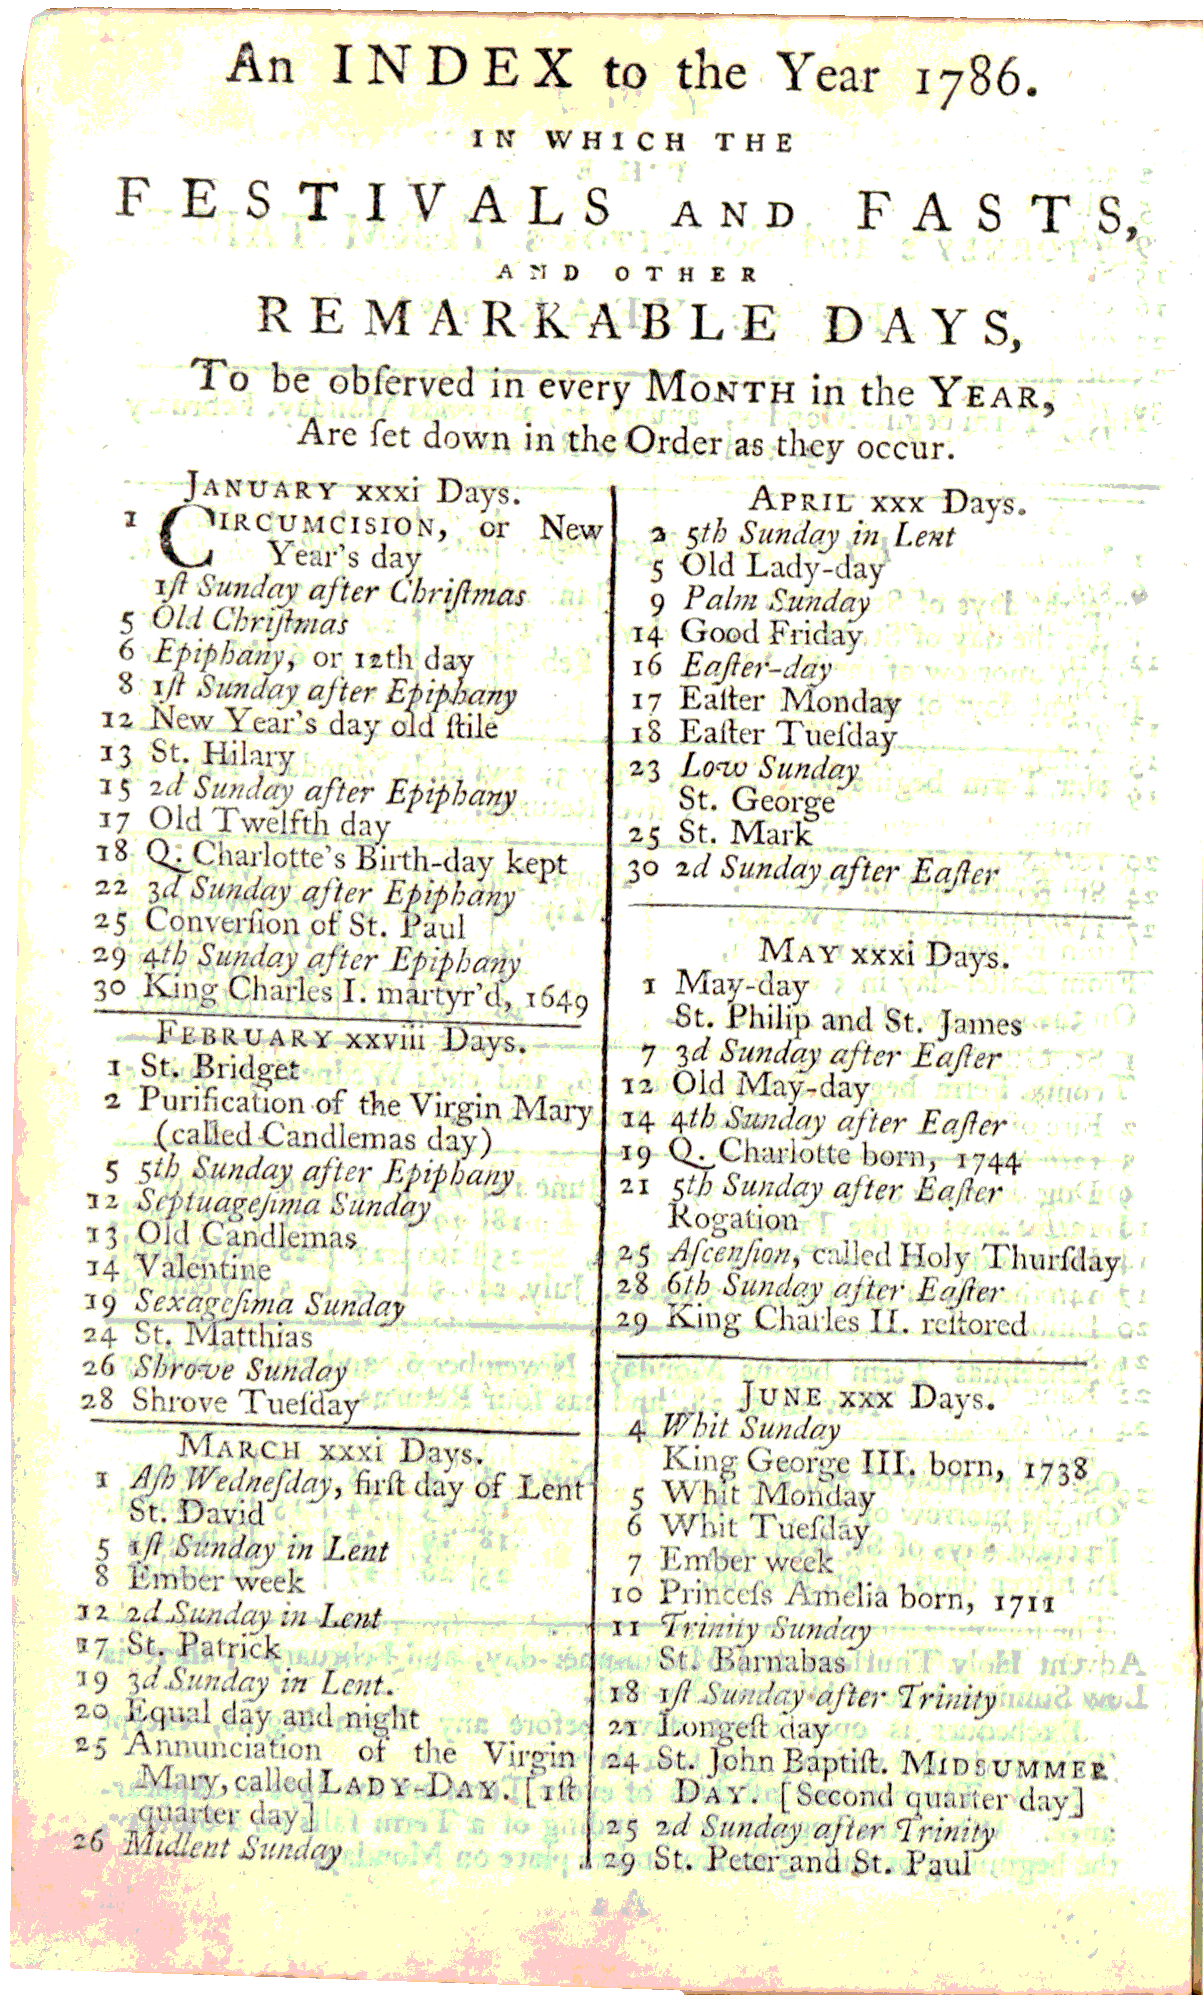 An INDEX to the Year 1786.
IN WHICH THE
FESTIVALS AND FASTS,
AND OTHER
REMARKABLE DAYS,
To be obſerved in every MONTH in the YEAR,
Are ſet down in the Order as they occur.
JANUARY xxxi Days.
1 CIRCUMCISION, or New
Year's day
1ſt Sunday after Chriſtmas
5 Old Chriſtmas
6 Epiphany, or 12th day
8 1ſt Sunday after Epiphany
12 New Year's day old ſtile
13 St. Hilary
15 2d Sunday after Epiphany
17 Old Twelfth day
18 Q. Charlotte's Birth-day kept
22 3d Sunday after Epiphany
25 Converſion of St. Paul
29 4th Sunday after Epiphany
30 King Charles I. martyr'd, 1649
FEBRUARY xxviii Days.
1 St. Bridget
2 Purification of the Virgin Mary
(called Candlemas day)
5 5th Sunday after Epiphany
12 Septuageſima Sunday
13 Old Candlemas
14 Valentine
19 Sexageſima Sunday
24 St. Matthias
26 Shrove Sunday
28 Shrove Tueſday
MARCH xxxi Days.
1 Aſh Wedneſday, firſt day of Lent
St. David
5 1ſt Sunday in Lent
8 Ember week
12 2d Sunday in Lent
17 St. Patrick
19 3d Sunday in Lent.
20 Equal day and night
25 Annunciation of the Virgin
Mary, called LADY-DAY. [1ſt
quarter day]
26 Midlent Sunday
APRIL xxx Days.
2 5th Sunday in Lent
5 Old Lady-day
9 Palm Sunday
14 Good Friday
16 Eaſter-day
17 Eaſter Monday
18 Eaſter Tueſday
23 Low Sunday
St. George
25 St. Mark
30 2d Sunday after Eaſter
MAY xxxi Days.
1 May-day
St. Philip and St. James
7 3d Sunday after Eaſter
12 Old May-day
14 4th Sunday after Eaſter
19 Q. Charlotte born, 1744
21 5th Sunday after Eaſter
Rogation
25 Aſcenſion, called Holy Thurſday
28 6th Sunday after Eaſter
29 King Charles II. reſtored
JUNE xxx Days.
4 Whit Sunday
King George III. born, 1738
5 Whit Monday
6 Whit Tueſday
7 Ember week
10 Princeſs Amelia born, 1711
11 Trinity Sunday
St. Barnabas
18 1ſt Sunday after Trinity
21 Longeſt day
24 St. John Baptiſt. MIDSUMMER
DAY. [Second quarter day]
25 2d Sunday after Trinity
29 St. Peter and St. Paul